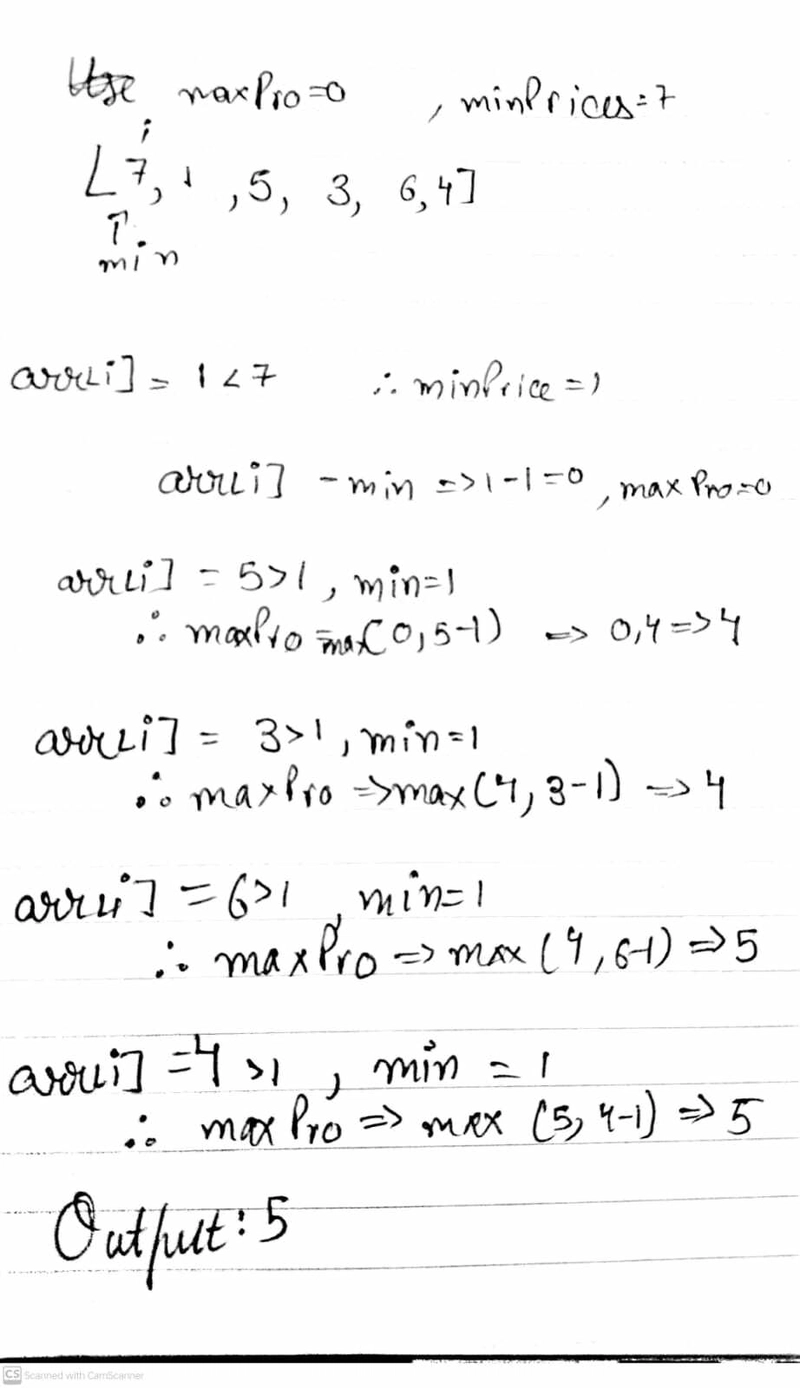 maxPro=0 , minPrices=7
i
[7, 1 ,5, 3, 6,4]
↑
min
arr[i] = 1 < 7 ∴ minPrice = 1
arr[i] - min => 1 - 1 = 0 , maxPro=0
arr[i] = 5>1 , min=1
∴ maxPro = max(0,5-1) => 0,4 => 4
arr[i] = 3>1 , min=1
∴ maxPro => max(4, 3-1) => 4
arr[i] = 6>1 , min=1
∴ maxPro => max (4, 6-1) => 5
arr[i] = 4 >1 , min = 1
∴ maxPro => max (5, 4-1) => 5
Output: 5
CS Scanned with CamScanner